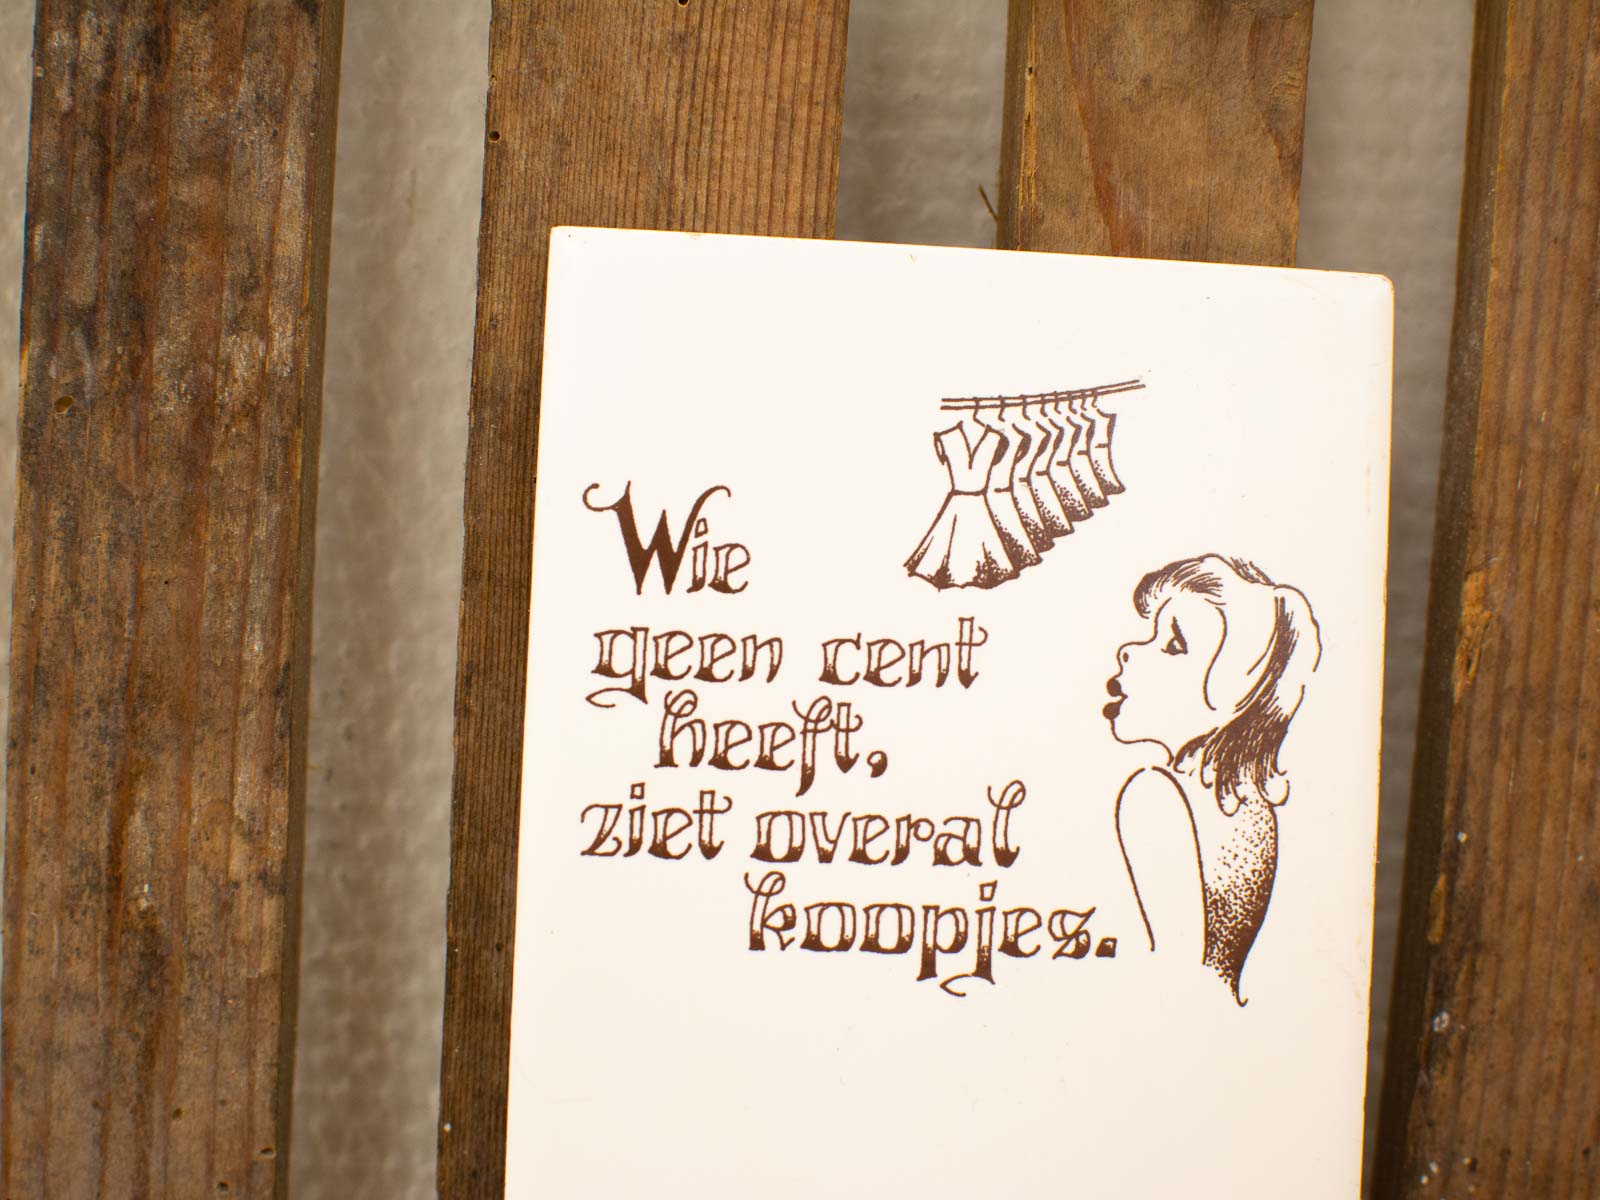 Wie
geen cent
heeft,
ziet overal
koopjes.